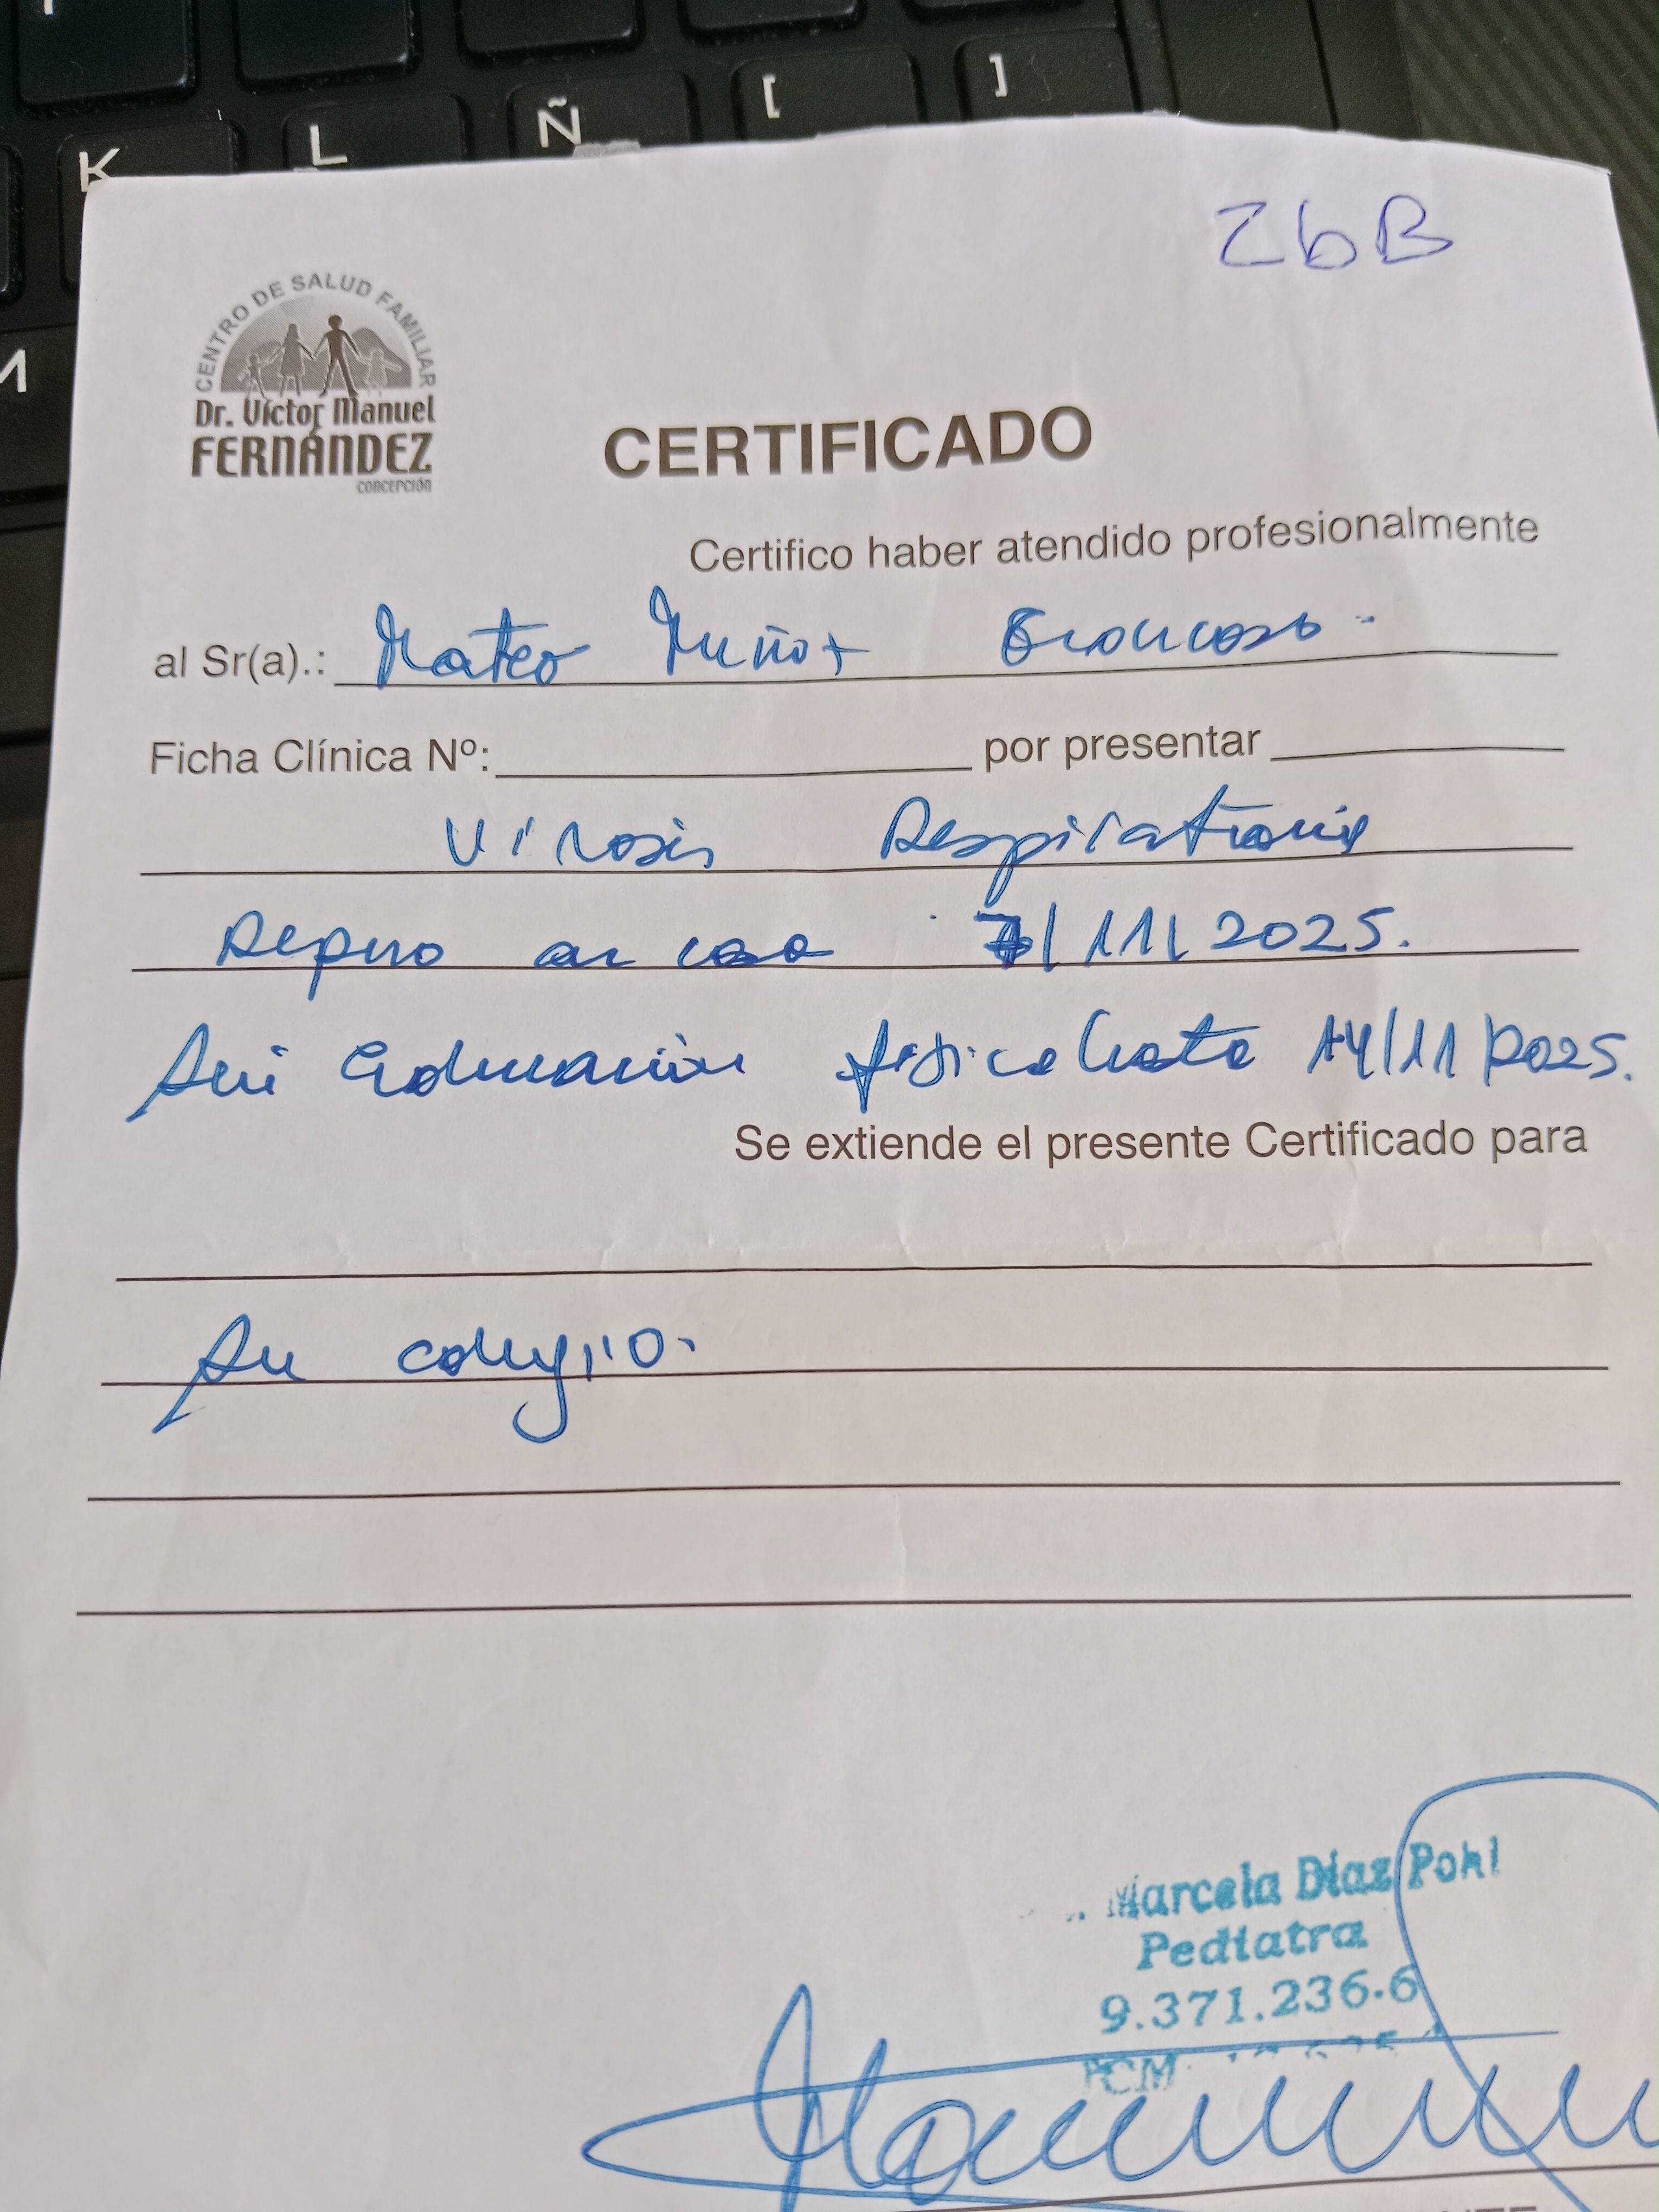 K L Ñ [ ]
M
2bB
CENTRO DE SALUD FAMILIAR
Dr. Víctor Manuel
FERNÁNDEZ
CONCEPCIÓN
CERTIFICADO
Certifico haber atendido profesionalmente
al Sr(a).: Mateo Muñoz
Ficha Clínica Nº: por presentar
Virosis Respiratoria
Reposo en casa 7/11/2025.
Sin Educación física hasta 14/11/2025.
Se extiende el presente Certificado para
Su colegio.
Marcela Díaz Pohl
Pediatra
9.371.236.6